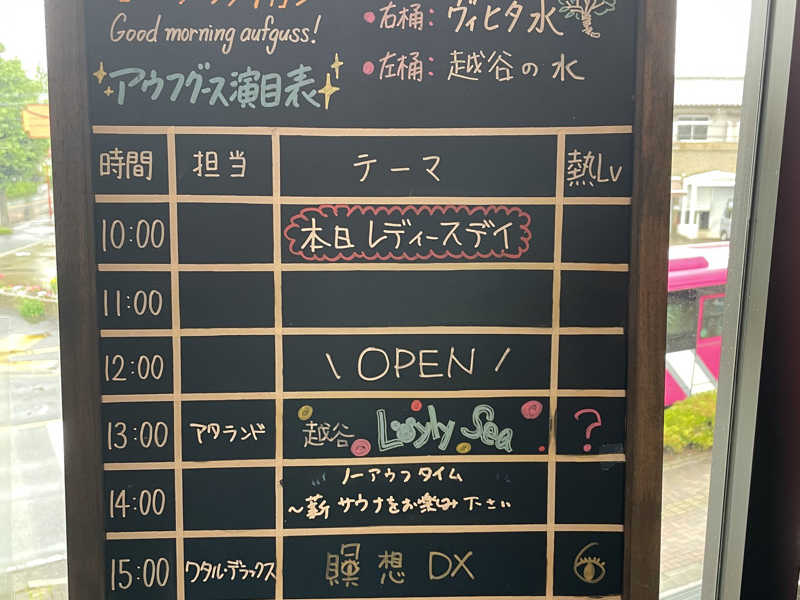 Good morning aufguss!
・右桶：ヴィヒタ水
アウフグース演目表
・左桶：越谷の水
時間 担当 テーマ 熱Lv
10:00 本日レディースデイ
11:00
12:00 \ OPEN /
13:00 アタランド 越谷 Löyly Sea ?
14:00 ノーアウフタイム
～薪サウナをお楽み下さい
15:00 ワタル・デラックス 瞑想DX